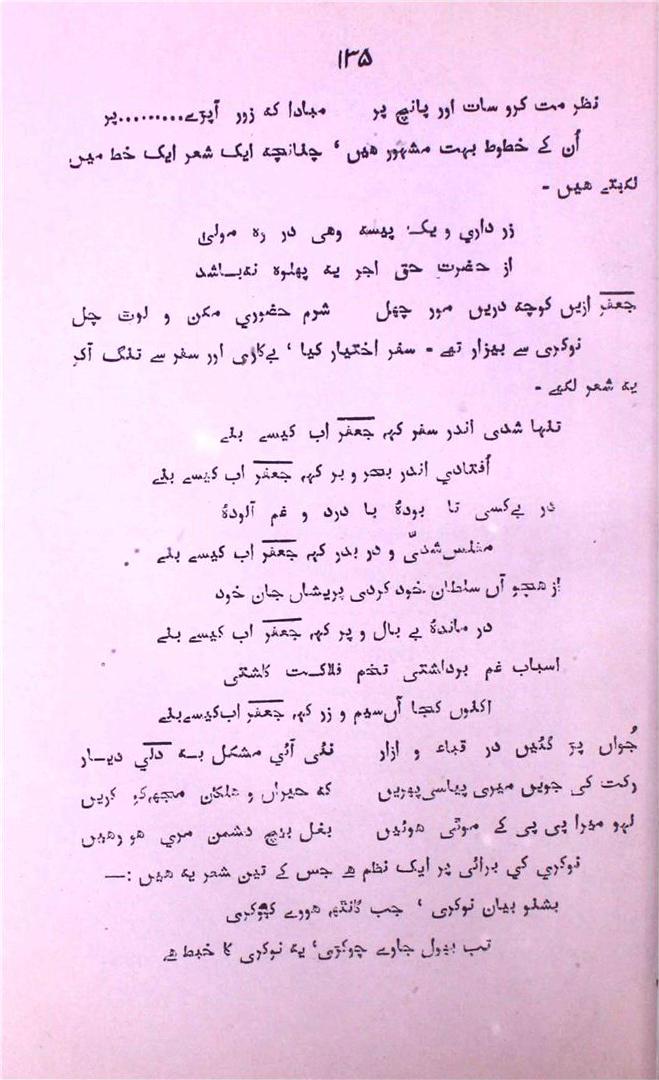 ۱۳۵
نظر مت کرو سات اور پانچ پر مبادا کہ زور آپڑے.........پر
اُن کے خطوط بہت مشہور ہیں ' چنانچہ ایک شعر ایک خط میں
لکھتے ہیں -
زر داری و یک پیسہ وہی در رہ مولیٰ
از حضرت حق اجر بہ پہلوہ نہ‌باشد
جعفر ازیں کوچہ دریں مور چھل شرم حضوری مکن و لوت چل
نوکری سے بیزار تھے - سفر اختیار کیا ' بےکاری اور سفر سے تنگ آکر
یہ شعر لکھے -
تنہا شدی اندر سفر کہہ جعفر اب کیسے بنے
اُفتادی اندر بحر و بر کہہ جعفر اب کیسے بنے
در بےکسی تا بودۂ با درد و غم آلودۂ
مفلس شدی و در بدر کہہ جعفر اب کیسے بنے
از ہجو آں سلطان خود کردی پریشاں جان خود
در ماندۂ بے بال و پر کہہ جعفر اب کیسے بنے
اسباب غم برداشتی تخم فلاکت کاشتی
اکنوں کجا آں سیم و زر کہہ جعفر اب کیسے بنے
جُواں پڑ گئیں در قباء و ازار نئی آئی مشکل بہ دلی دیار
رکت کی جویں میری پیاسی پھریں کہ حیران و ہلکان مجھہ کو کریں
لہو میرا پی پی کے موٹی ہوئیں بغل بیچ دشمن مری ہو رہیں
نوکری کی برائی پر ایک نظم ہے جس کے تین شعر یہ ہیں :—
بشنو بیان نوکری ' جب گانٹھہ ہووے کھوکری
تب بھول جاوے چوکڑی ' یہ نوکری کا خبط ہے